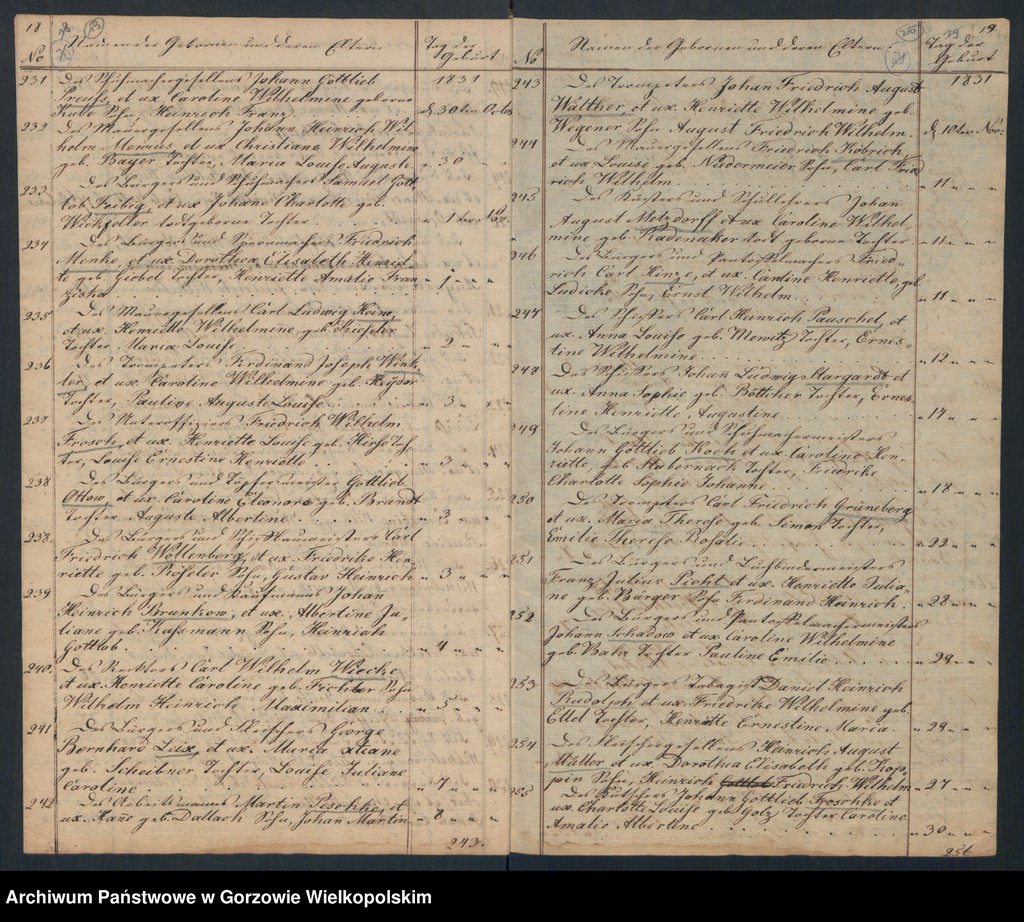 18
18
19
No
Namen der Gebornen und deren Eltern
Tag der
Geburt
231
Des Schuhmachergesellens Johann Gottlieb
1831
Preuss, et ux. Caroline Wilhelmine geborne
Sohn, Heinrich Franz
d. 30ten Octob
232
Des Mauergesellens Johann Heinrich Wil-
helm Mervius, et ux Christiane Wilhelmine
geb. Bayer Tochter, Maria Louise Auguste
" 30 " "
233
Des Bürgers und Schuhmachers Samuel Gott
lob Feibig, et ux Johane Charlotte geb.
todtgeborne Tochter
" 1ten Nov.
234
Des Bürgers und Friedrich
Menke, et ux. Dorothea Elisabeth Henriet-
te geb. Giebel Tochter, Henriette Amalie Fran
ziska
" 1 " "
235
Des Mauergesellens Carl Ludwig Heim,
et ux. Henriette Wilhelmine, geb.
Tochter Maria Louise
" 2 " "
236
Des Trompeters Ferdinand Joseph Wink
ler, et ux. Caroline Wilhelmine geb. Heyder
Tochter, Pauline Auguste Louise
" 3 " "
237
Des Unterofficiers Friedrich Wilhelm
Frosch, et ux. Henriette Louise geb. Hirse Toch
ter, Louise Ernestine Henriette
" 3 " "
238
Des Bürgers und Töpfermeister Gottlieb
Ottow, et ux. Caroline Eleonore geb. Brandt
Tochter Auguste Albertine
" 3 " "
238
Des Bürgers und Carl
Friedrich Wollenberg, et ux. Friedricke Hen
riette geb. Sohn, Gustav Heinrich
" 3 " "
239
Des Bürgers und Kaufmanns Johan
Heinrich Brunkow, et ux. Albertine Ju
liane geb. Sohn, Heinrich
Gottlob
" 4 " "
240.
Des Rectors Carl Wilhelm Wecke
et ux. Henriette Caroline geb. Fichtler Sohn
Wilhelm Heinrich, Maximilian
" 5 " "
241
Des Bürgers und Fleischers George
Bernhard Leix, et ux. Maria
geb. Scheibner Tochter, Louise Juliane
Caroline
" 7 " "
242
Des Arbeitsmanns Martin Peschke, et
ux. Hane geb. Dallach Sohn, Johan Martin
" 8 " "
243.
20
19
19
No
Namen der Gebornen und deren Eltern
Tag der
Geburt
243
Des Trompeters Johan Friedrich August
1831
Walther, et ux. Henriette Wilhelmine geb.
Wegener Sohn August Friedrich Wilhelm.
d. 10ten Nov:
244
Des Mauergesellens Friedrich Kobrich,
et ux. Louise geb. Niedermeier Sohn, Carl Fried
rich Wilhelm
" 11 " "
245
Des Küsters und Schullehrers Johan
August Metzdorff et ux Caroline Wilhel-
mine geb. Rademaker todt geborne Tochter
" 11 " "
246
Des Bürgers und Pantoffelmachers Fried-
rich Carl Hinze, et ux. Caroline Henriette, geb
Ludicke Sohn, Ernst Wilhelm
" 11 " "
247
Des Schiffers Carl Heinrich Pauschel, et
ux. Anna Louise geb. Mewitz Tochter, Ernes-
tine Wilhelmine
" 12 " "
248
Des Schiffers Johan Ludwig Stargardt et
ux. Anna Sophie geb. Böttcher Tochter, Ernes
tine Henriette Augustine
" 17 " "
249
Des Bürgers und Schuhmachermeisters
Johann Gottlieb Koch et ux. Caroline Hen
riette, geb Stubernack Tochter, Friedrike
Charlotte Sophie Johanne
" 18 " "
250
Des Trompeters Carl Friedrich Grüneberg
et ux. Maria Therese geb. Simon Tochter,
Emilie Therese Rosalie
" 22 " "
251
Des Bürgers und Tuchbindermeisters
Franz Julius Picht et ux. Henriette Julia-
ne geb. Bürger Sohn Ferdinand Heinrich
" 28 " "
252
Des Bürgers und Pantoffelmachermeisters
Johann Schadow et ux Caroline Wilhelmine
geb Bahr Tochter Pauline Emilie
" 29 " "
253
Des Bürgers Tabagist Daniel Heinrich
Rudolph et ux Friedrike Wilhelmine geb.
Ettel Tochter, Henriette Ernestine Maria
" 29 " "
254
Des Fleischergesellens Heinrich August
Müller et ux. Dorothea Elisabeth geb. Kop-
pin Sohn, Heinrich Friedrich Wilhelm
" 27 " "
255
Des Johann Gottlieb Proschke et
ux. Charlotte Louise geb Golz Tochter Caroline
Amalie Albertine
" 30 " "
256
Archiwum Państwowe w Gorzowie Wielkopolskim